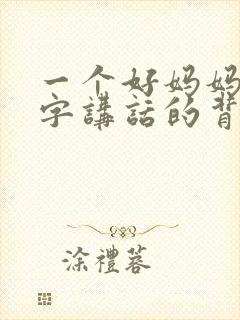 一个好妈妈
字講話的背
涂禮蓉